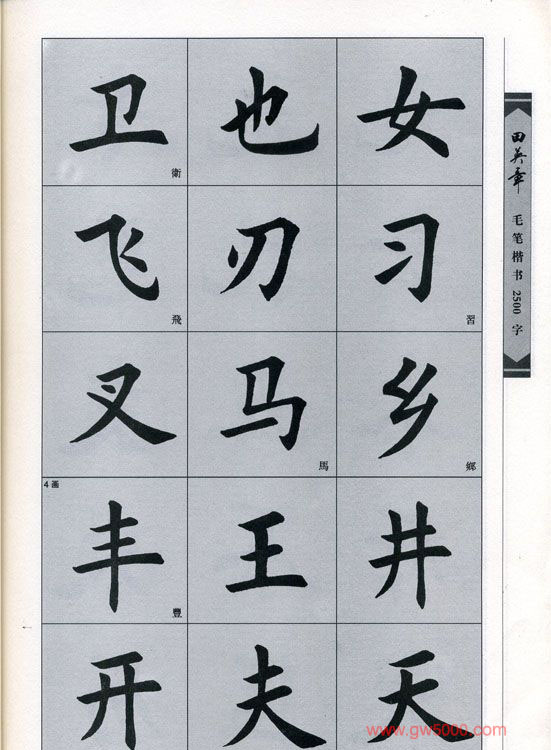 卫 也 女
衛
飞 刃 习
飛 習
叉 马 乡
馬 鄉
4画
丰 王 井
豐
开 夫 天
田英章
毛笔楷书2500字
www.gw5000.com